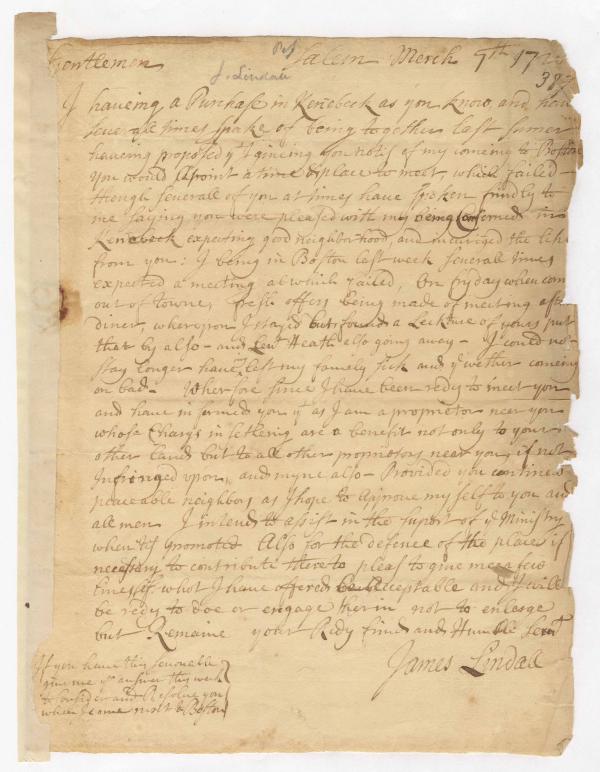 Gentlemen Salem Merch 7th 172
J. Lindall
387
I haveing a Purchase in Kenebeck as you know, and have
severall times spoke of being together last sumer
haveing proposed yt I giveing you notis of my comeing to Boston
You would apoint a time & place to meet, which failed -
though severall of you at times have spoken friendly to
me saying you were pleased with my being Concerned in
Kenebeck expecting good neighborhood, and incuriged the like
from you: I being in Boston last week severall times
expected a meeting at which failed, On fryday when com
out of towne, fresh offers being made of meeting aftr
diner, whereupon I stayed but found a Leckture of yours put
that by also - and Leut Heath also going away - I could not
stay longer haveing left my family sick and ye wether comeing
on bad - Wherfore since I have been redy to meet you
and have informed you yt as I am a proprietor near you
whose Charys in setlering are a benefit not only to your
other land but to all other propriotors near you, if not
Infringed upon, and myne also - Provided you continew
peaceable neighbors as I hope to Approve my self to you and
all men I intend to assist in the suport of ye Ministry
when tis promoted Also for the defence of the place if
necessary to contribute there to pleas to give me a few
lines if what I have offered be acceptable and I will
be redy to doe or engage therin not to enlarge
but Remaine your Redy frind and Humble Servt
James Lindall
If you have this seasonable
give me yr answer this week
to consider and Resolve you
when I come next to Boston